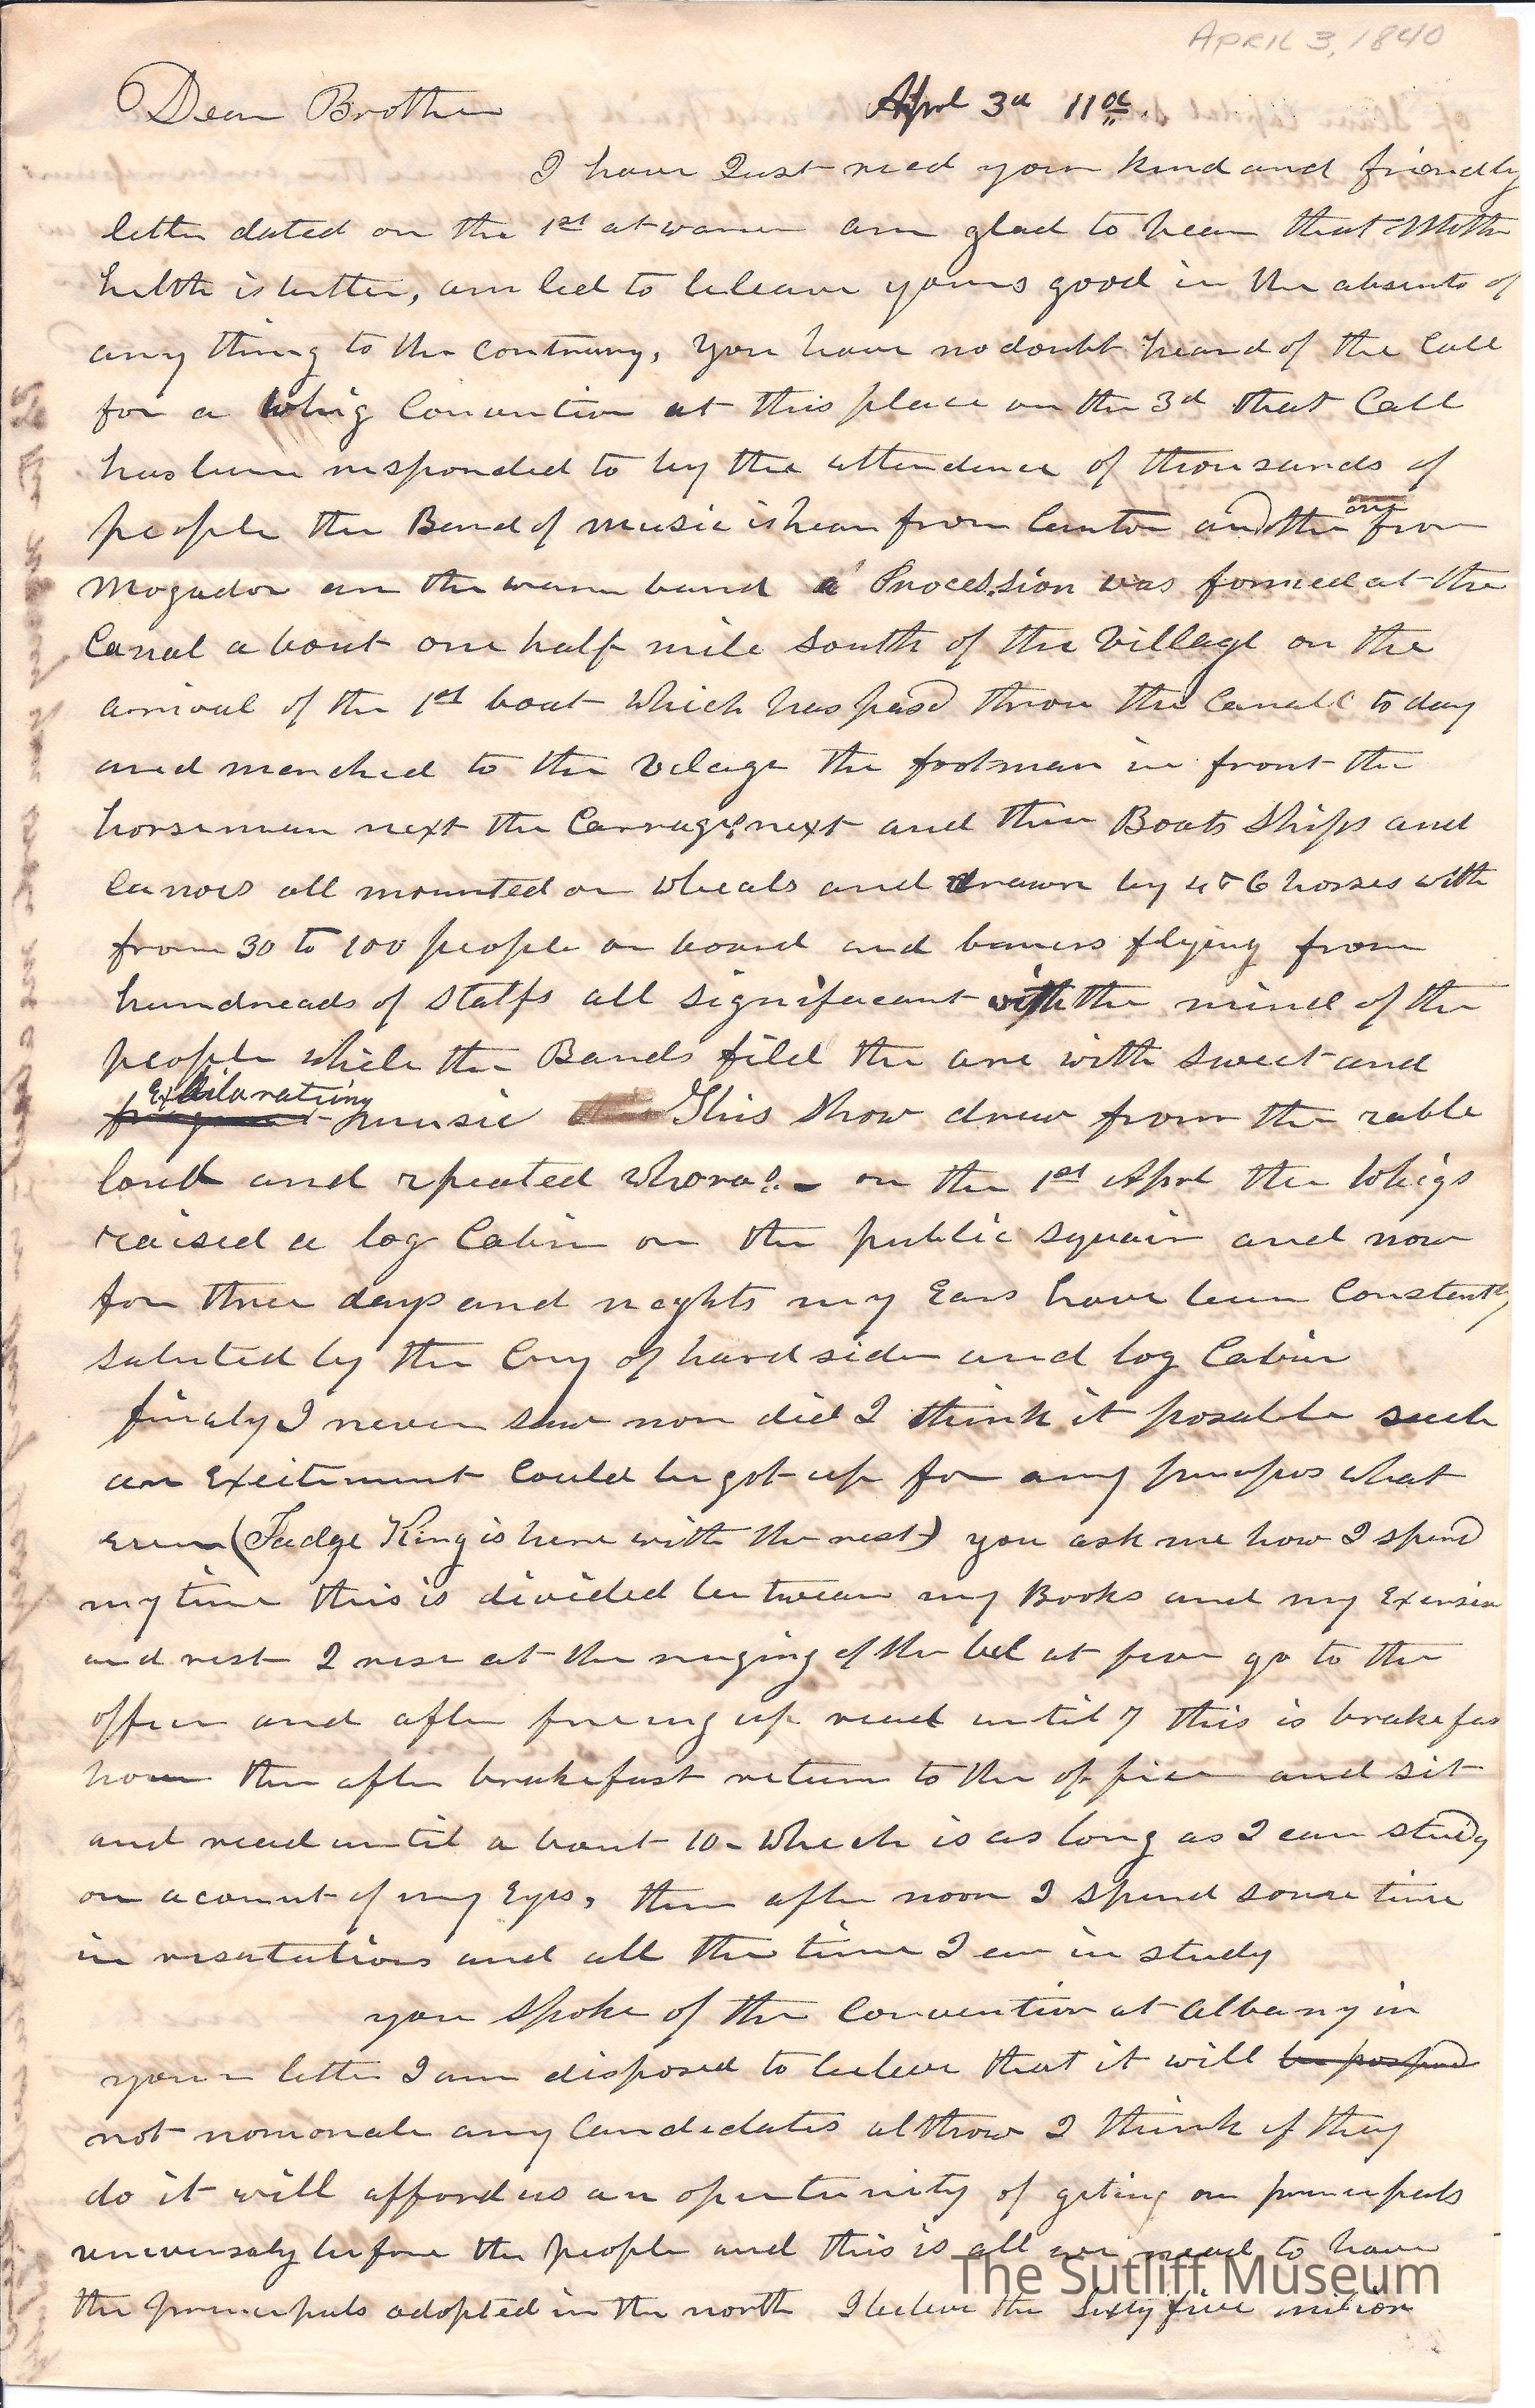 APRIL 3, 1840
Dear Brother April 3d 11 oc.
I have Just recd your kind and friendly
letter dated on the 1st at waren am glad to hear that Mother
helth is better, am led to beleave yours good in the absents of
any thing to the contrary, You have no doubt heard of the Call
for a Whig Convention at this place on the 3d that Call
has been responded to by the attendence of thousands of
people the Band of music is hear from Canton another one from
Mogador an the waren band a Procession was formed at the
Canal about one half mile South of the Village on the
arrival of the 1st boat which has pasd throu the Canall to day
and marched to the Velage the footman in front the
horseman next the Carrages next and then Boats Ships and
Canoes all mounted on wheals and drawn by 4 & 6 horses with
from 30 to 100 people on board and baners flying from
hundreads of Staffs all signifacant with the mind of the
people while the Bands fild the are with sweet and
Exhilarating music This Show drew from the rable
loud and rpeated whoras. on the 1st Aprl the Whigs
raised a log Cabin on the public squair and now
for three days and nayhts my Ears have been Constently
saluted by the Cry of hard sider and log Cabin
finaly I never saw nor did I think it posable such
an Exeitement Could be got up for any purpos what
ever (Judge King is here with the rest) you ask me how I spend
my time this is divided be twean my Books and my Exersise
and rest I rise at the ringing of the bel at five go to the
office and after fireing up read until 7 this is brakefas
hour then after brakefast return to the office and sit
and read until a bout 10 which is as long as I can study
on acount of my Eyes, then after noon I spend some time
in resatations and all the time I can in study
you spoke of the Convention at Albany in
your letter I am disposed to beleve that it will be pospond
not nomonate any Candedates althrow I think if they
do it will afford us an opertunity of geting our princepals
uneversaly before the people and this is all we nead to have
the princepals adopted in the north I beleve the Sixty five milion
The Sutliff Museum